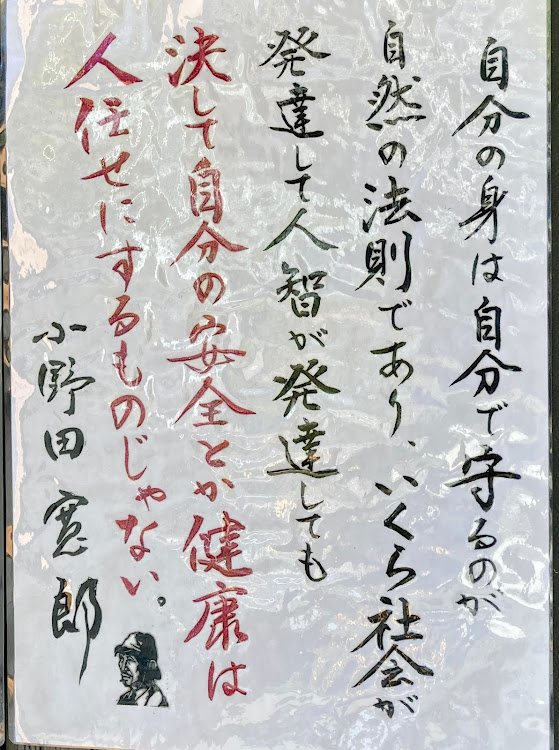 自分の身は自分で守るのが
自然の法則であり、いくら社会が
発達して人智が発達しても
決して自分の安全とか健康は
人任せにするものじゃない。
小野田寛郎